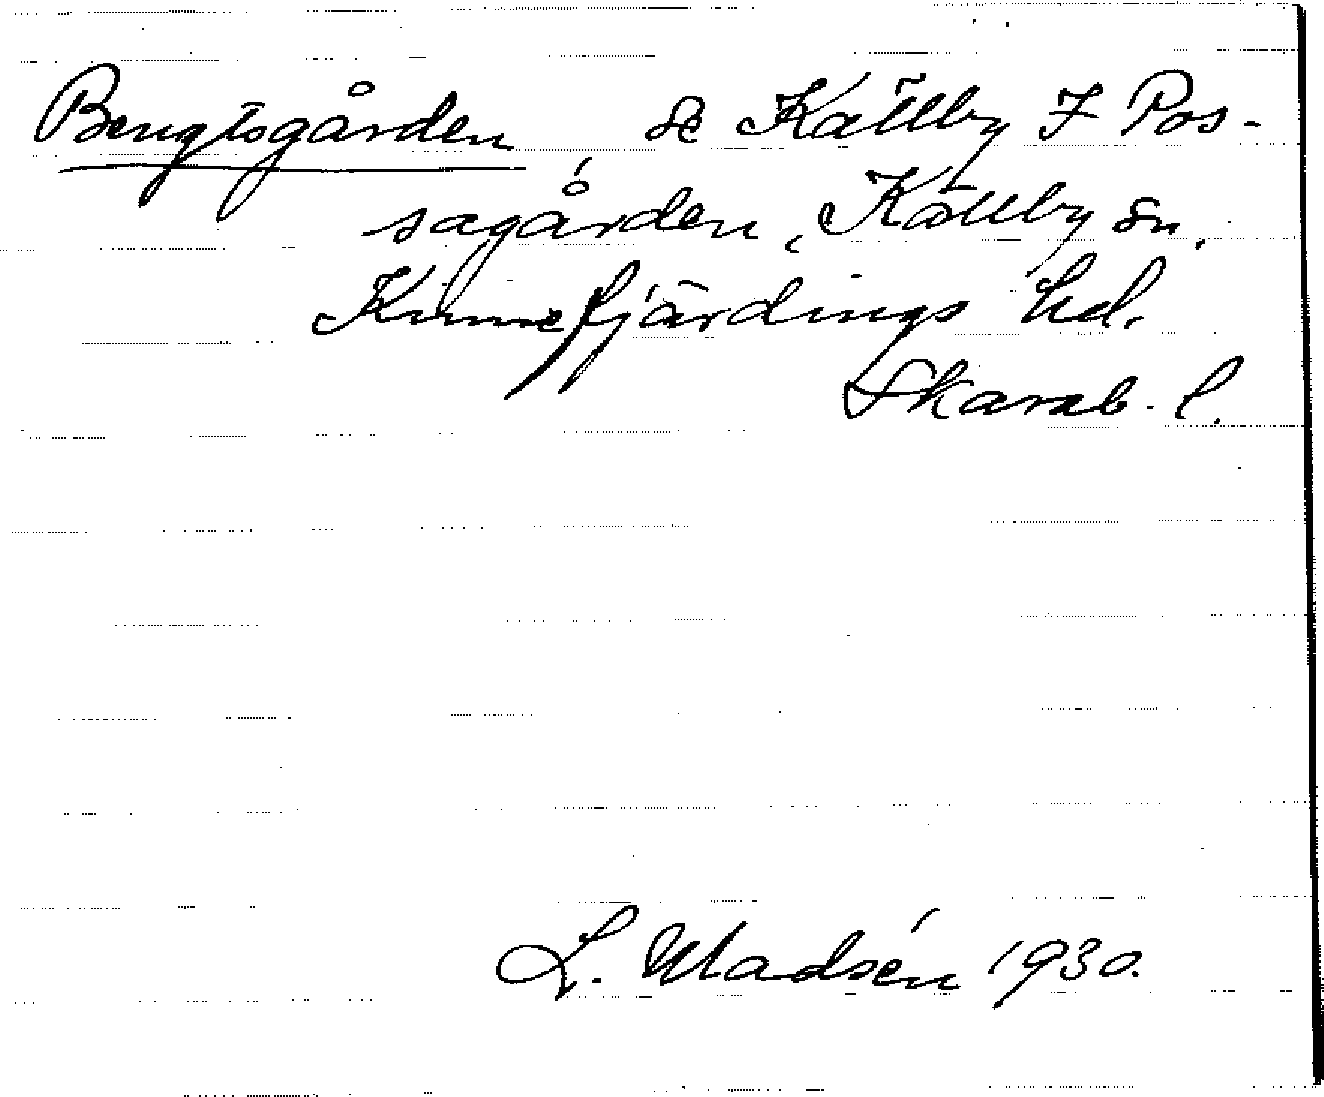 Bengtsgården se Källby 7 Pos-
sagården, Källby sn,
Kinnefjärdings hd.
Skarab. l.
L. Madsén 1930.